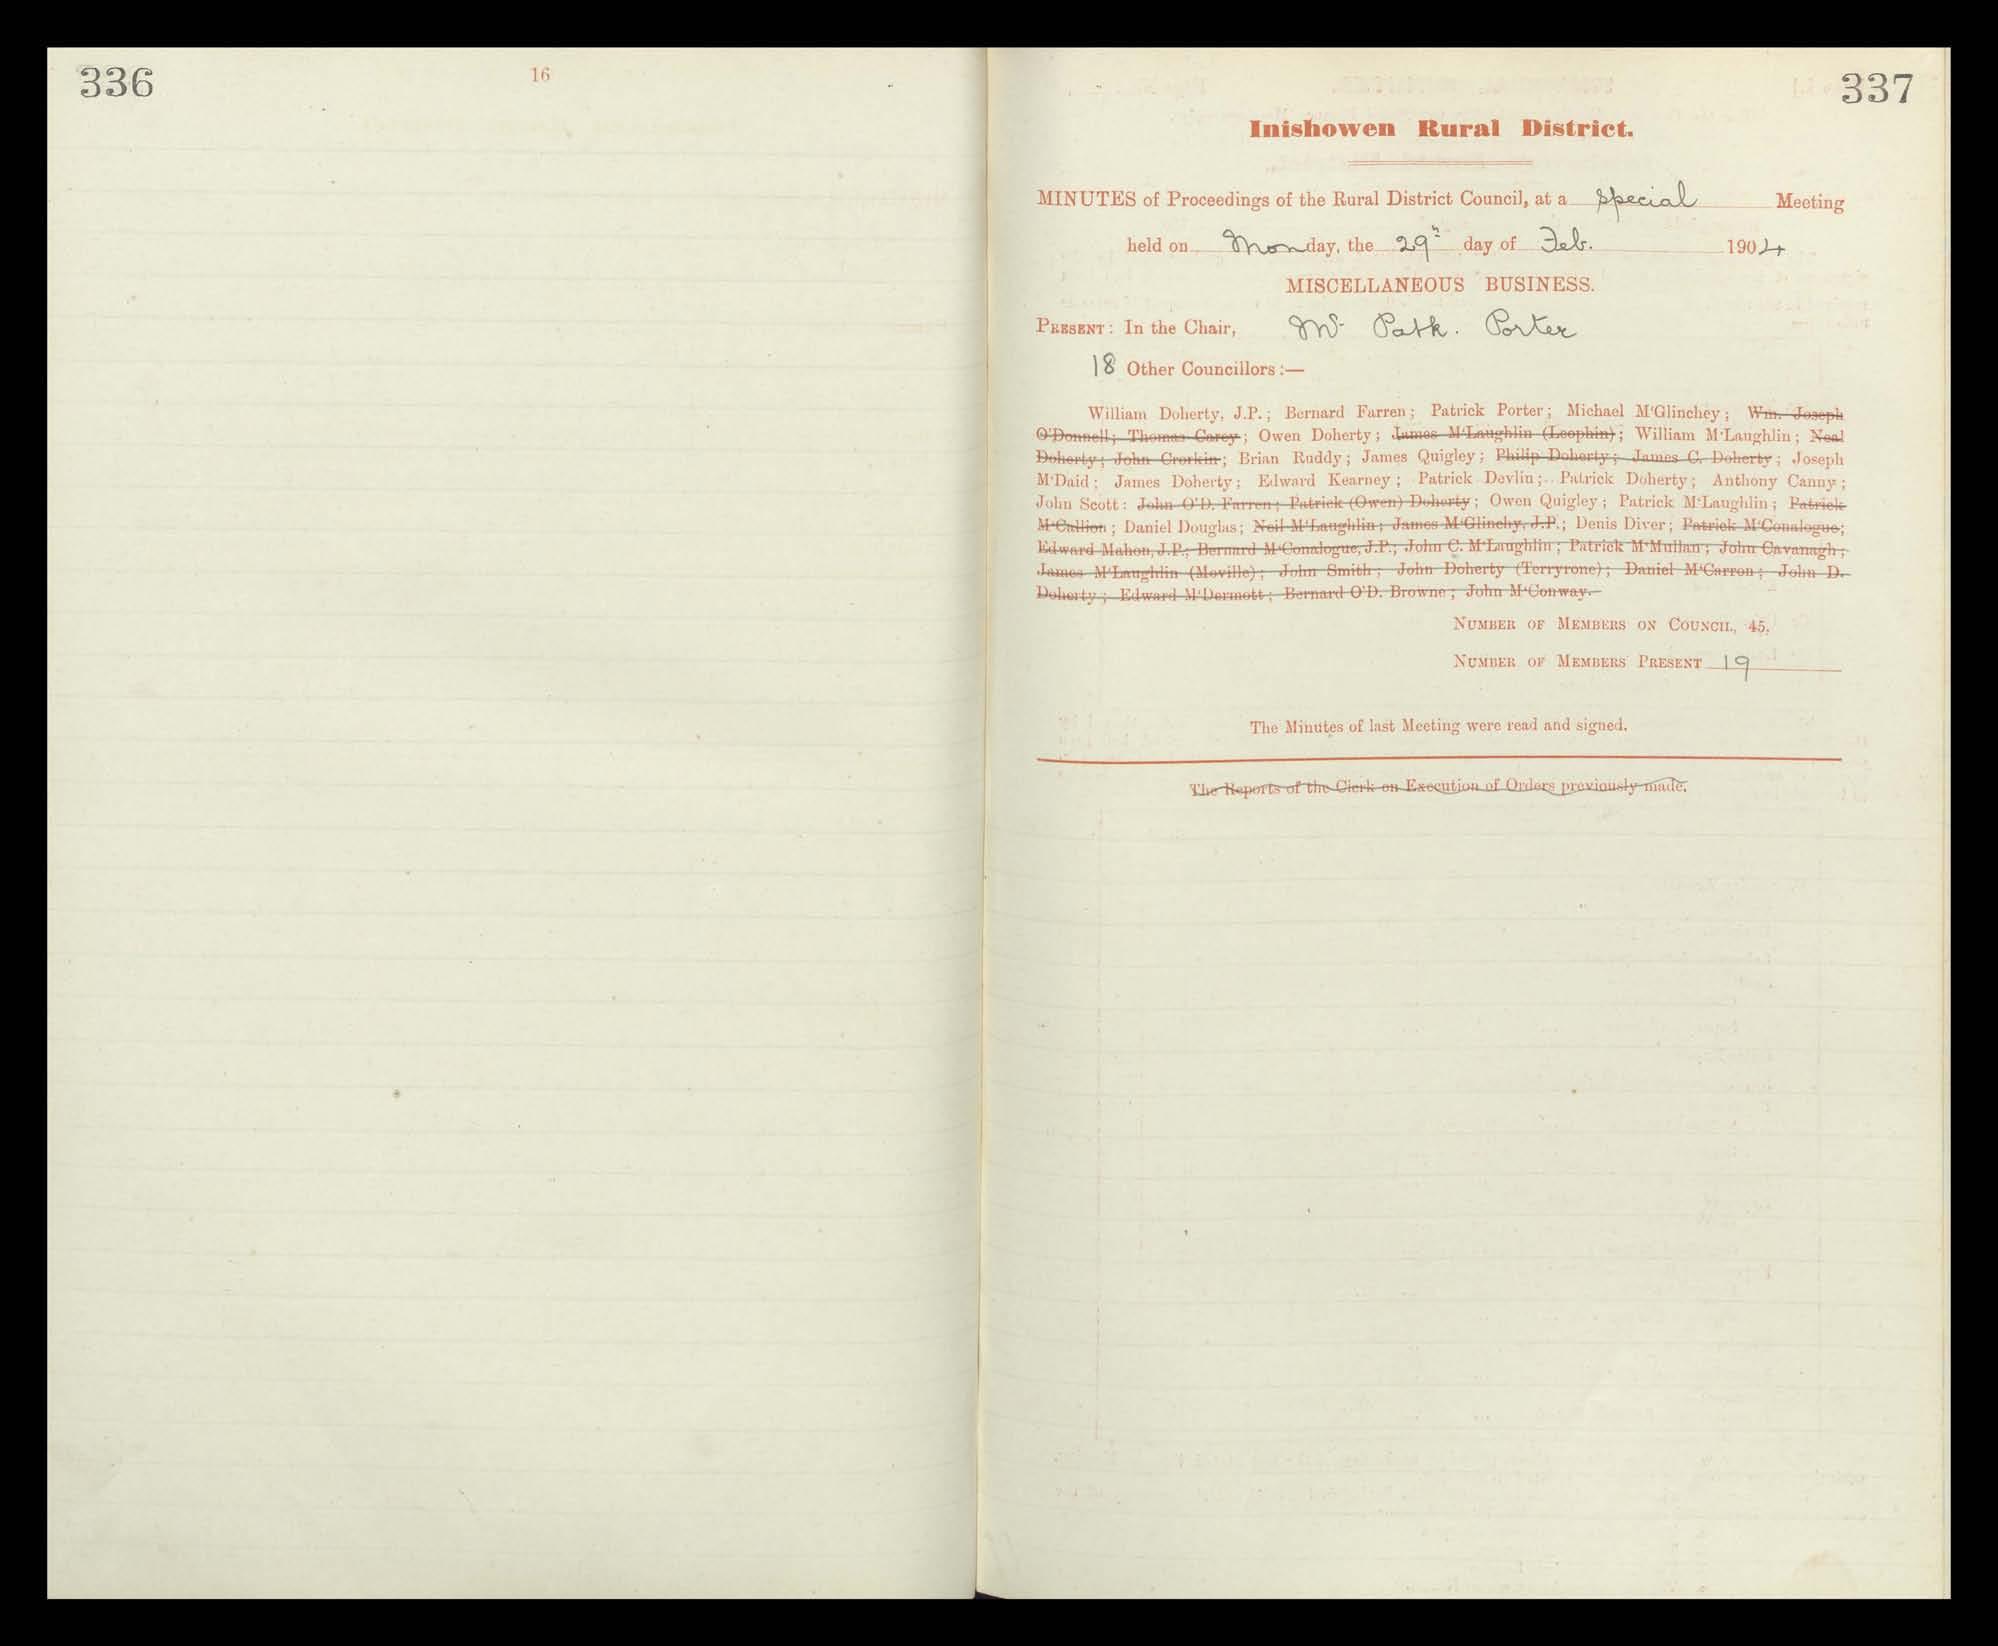 336
16
337
Inishowen Rural District.
MINUTES of Proceedings of the Rural District Council, at a special Meeting
held on Monday, the 29th day of Feb. 1904
MISCELLANEOUS BUSINESS.
PRESENT: In the Chair, Mr Patk. Porter
18 Other Councillors:—
William Doherty, J.P.; Bernard Farren; Patrick Porter; Michael M'Glinchey; Wm. Joseph
O'Donnell; Thomas Carey; Owen Doherty; James M'Laughlin (Leophin); William M'Laughlin; Neal
Doherty; John Crorkin; Brian Ruddy; James Quigley; Philip Doherty; James C. Doherty; Joseph
M'Daid; James Doherty; Edward Kearney; Patrick Devlin; Patrick Doherty; Anthony Canny;
John Scott: John O'D. Farren; Patrick (Owen) Doherty; Owen Quigley; Patrick M'Laughlin; Patrick
M'Callion; Daniel Douglas; Neil M'Laughlin; James M'Glinchy, J.P.; Denis Diver; Patrick M'Conalogue;
Edward Mahon, J.P.; Bernard M'Conalogue, J.P.; John C. M'Laughlin; Patrick M'Mullan; John Cavanagh;
James M'Laughlin (Moville); John Smith; John Doherty (Terryrone); Daniel M'Carron; John D.
Doherty; Edward M'Dermott; Bernard O'D. Browne; John M'Conway.
NUMBER OF MEMBERS ON COUNCIL, 45.
NUMBER OF MEMBERS PRESENT 19
The Minutes of last Meeting were read and signed.
The Reports of the Clerk on Execution of Orders previously made.